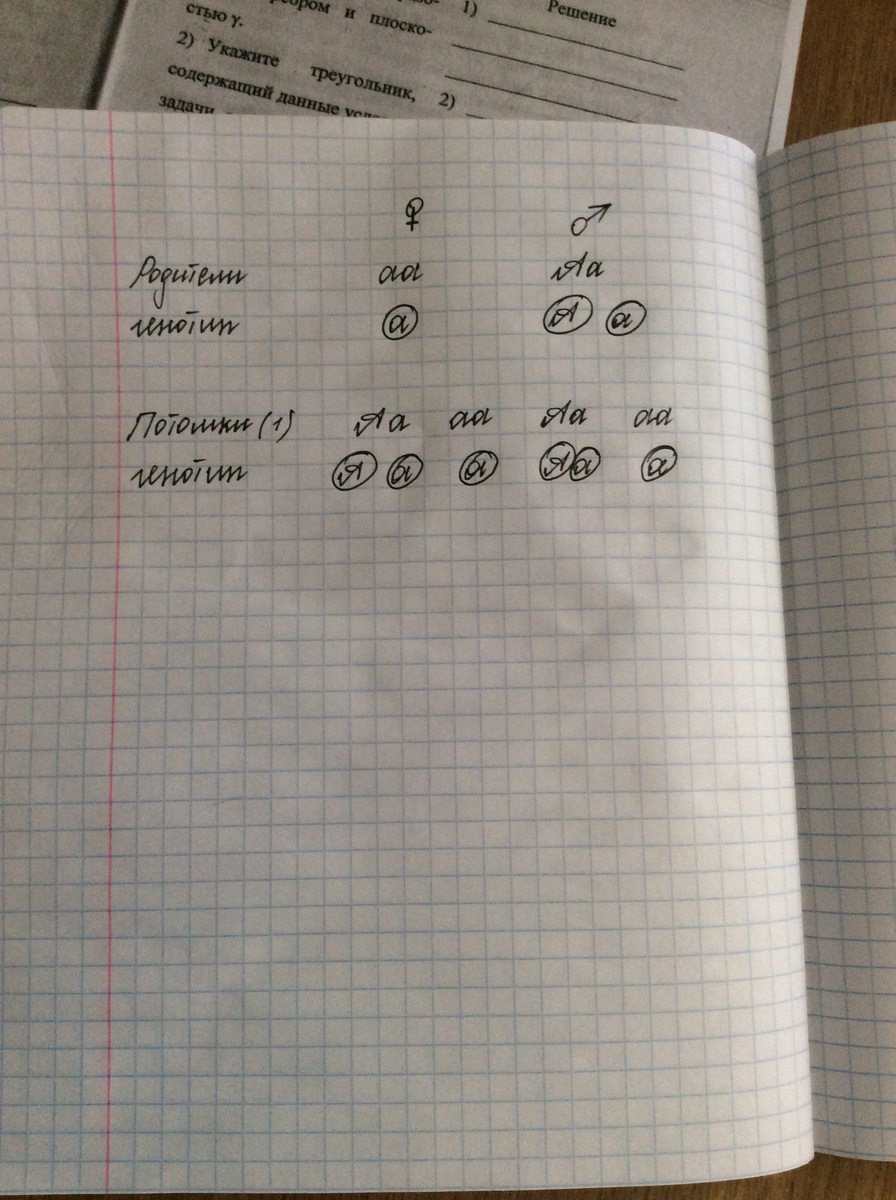 стью γ.
и плоско-
2) Укажите треугольник,
содержащий данные
задачи
1)
Решение
2)
♀ ♂
Родители аа Аа
генотип а А а
Потомки (1) Аа аа Аа аа
генотип А а а А а а